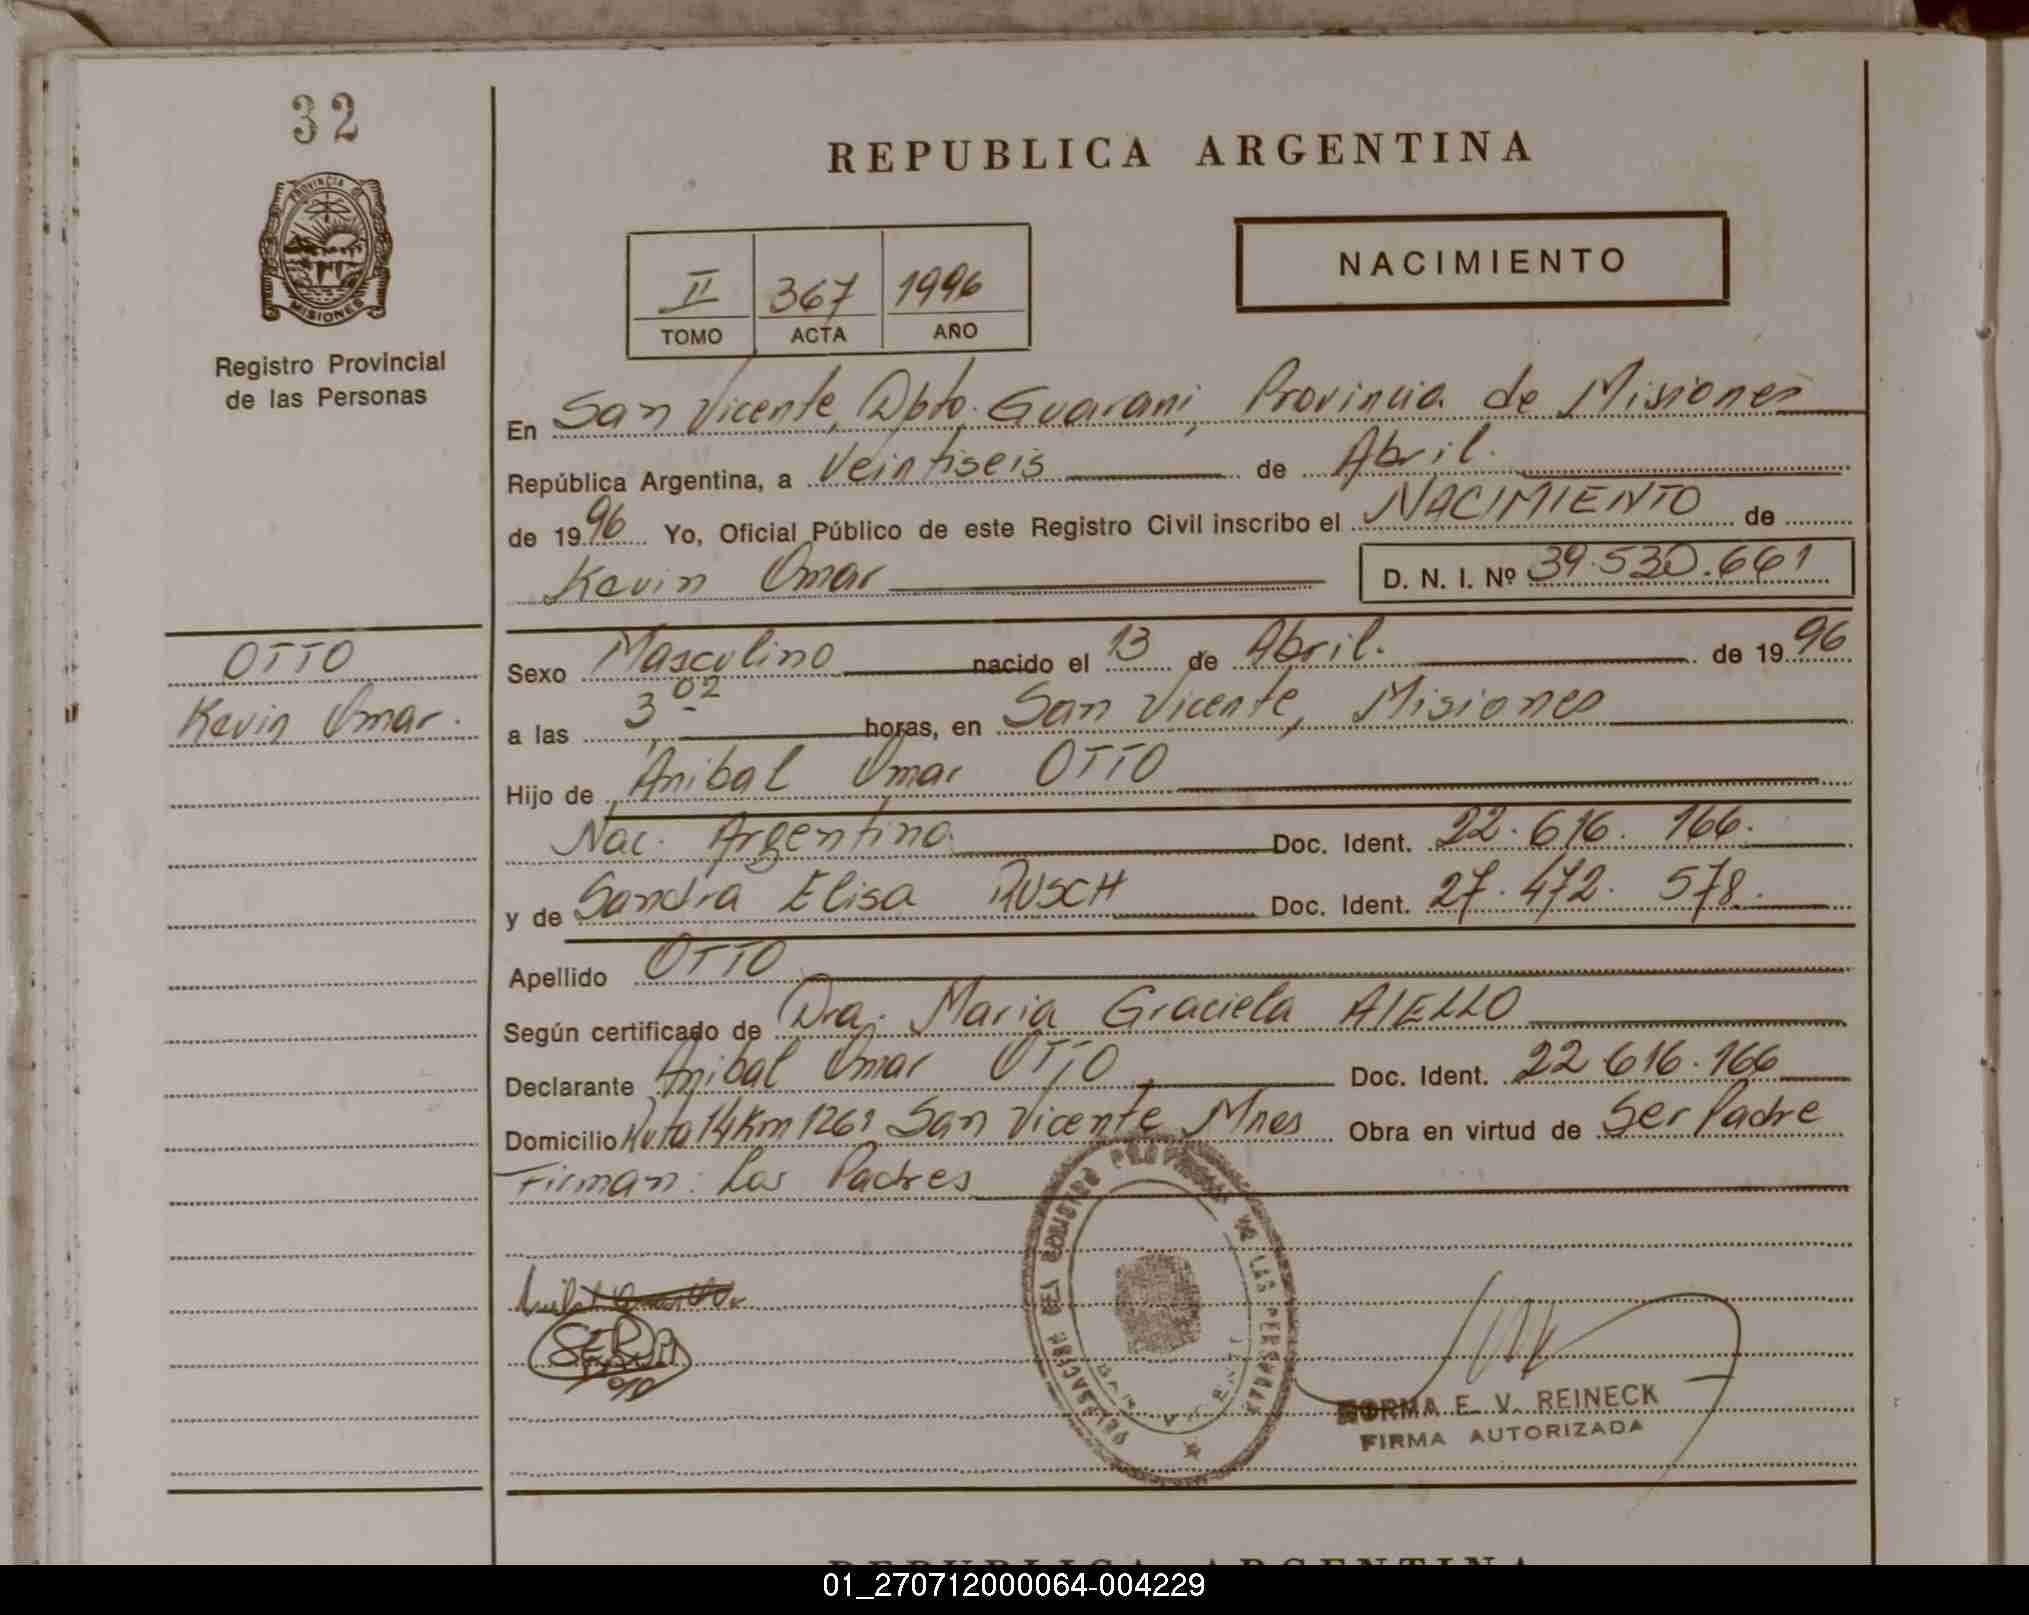 32
PROVINCIA DE
MISIONES
Registro Provincial
de las Personas
REPUBLICA ARGENTINA
II 367 1996
TOMO ACTA AÑO
NACIMIENTO
En San Vicente, Dpto. Guarani, Provincia de Misiones
República Argentina, a Veintiseis de Abril.
de 1996 Yo, Oficial Público de este Registro Civil inscribo el NACIMIENTO de
Kevin Omar D. N. I. Nº 39.530.661
OTTO
Kevin Omar.
Sexo Masculino nacido el 13 de Abril. de 1996
a las 3 02 horas, en San Vicente, Misiones
Hijo de Anibal Omar OTTO
Nac. Argentina Doc. Ident. 22.616.166.
y de Sandra Elisa RUSCH Doc. Ident. 27.472.578.
Apellido OTTO
Según certificado de Dra. Maria Graciela AIELLO
Declarante Anibal Omar OTTO Doc. Ident. 22 616.166
Domicilio Ruta 14 Km 1261 San Vicente Mnes Obra en virtud de Ser Padre
Firman: Los Padres
DELEGACION DEL REGISTRO PROVINCIAL DE LAS PERSONAS
SAN VICENTE
NORMA E. V. REINECK
FIRMA AUTORIZADA
REPUBLICA ARGENTINA
01_270712000064-004229